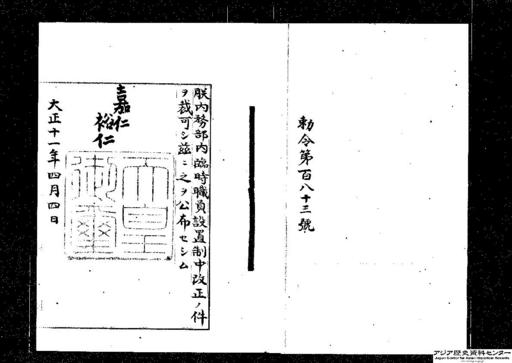 勅令第百八十三號
朕內務部內臨時職員設置制中改正ノ件
ヲ裁可シ茲ニ之ヲ公布セシム
嘉仁
裕仁
天皇御璽
大正十一年四月四日
アジア歴史資料センター
Japan Center for Asian Historical Records